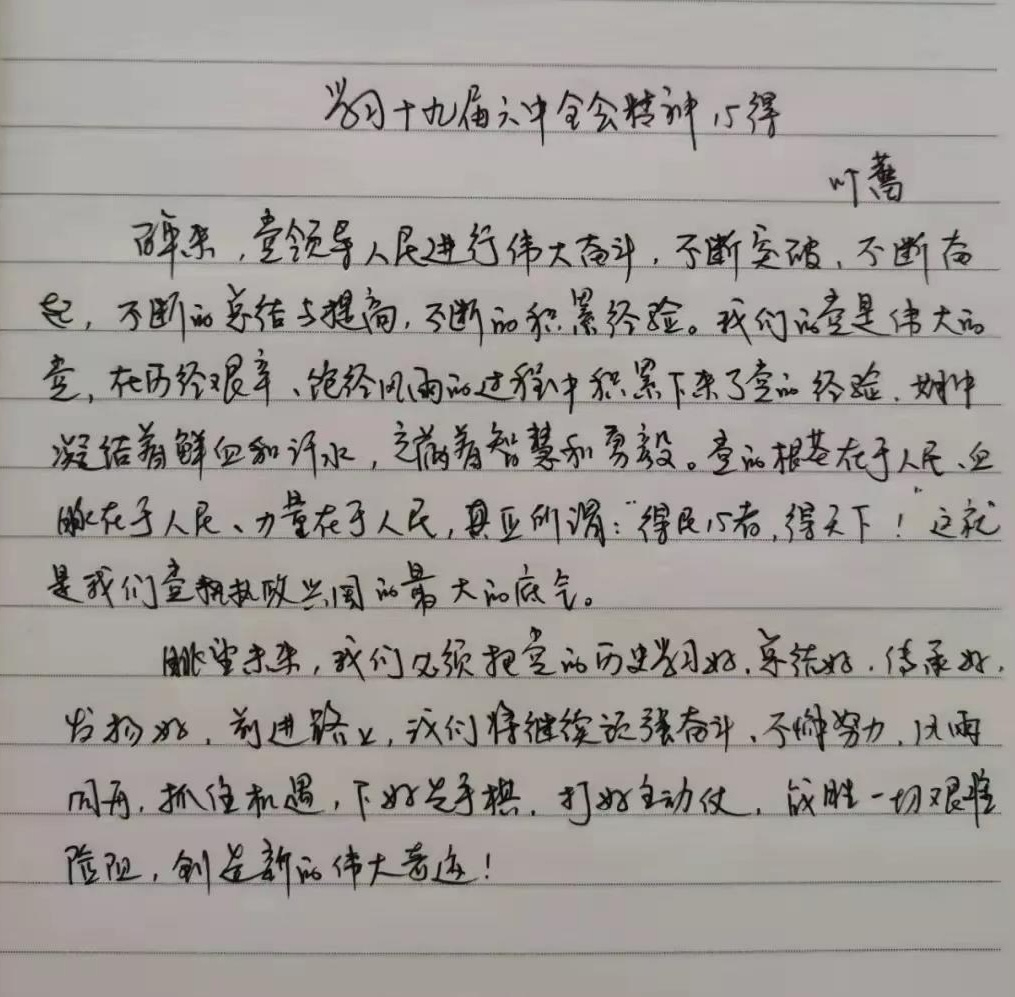 学习十九届六中全会精神心得
叶蔷
百年来，党领导人民进行伟大奋斗，不断突破，不断奋
起，不断的总结与提高，不断的积累经验。我们的党是伟大的
党，在历经艰辛、饱经风雨的过程中积累下来了党的经验，其中
凝结着鲜血和汗水，充满着智慧和勇毅。党的根基在于人民、血
脉在于人民、力量在于人民，真正所谓：“得民心者，得天下！”这就
是我们党执政兴国的最大的底气。
眺望未来，我们必须把党的历史学习好，总结好，传承好，
发扬好，前进路上，我们将继续顽强奋斗、不懈努力，风雨
同舟，抓住机遇，下好先手棋，打好主动仗，战胜一切艰难
险阻，创造新的伟大奇迹！